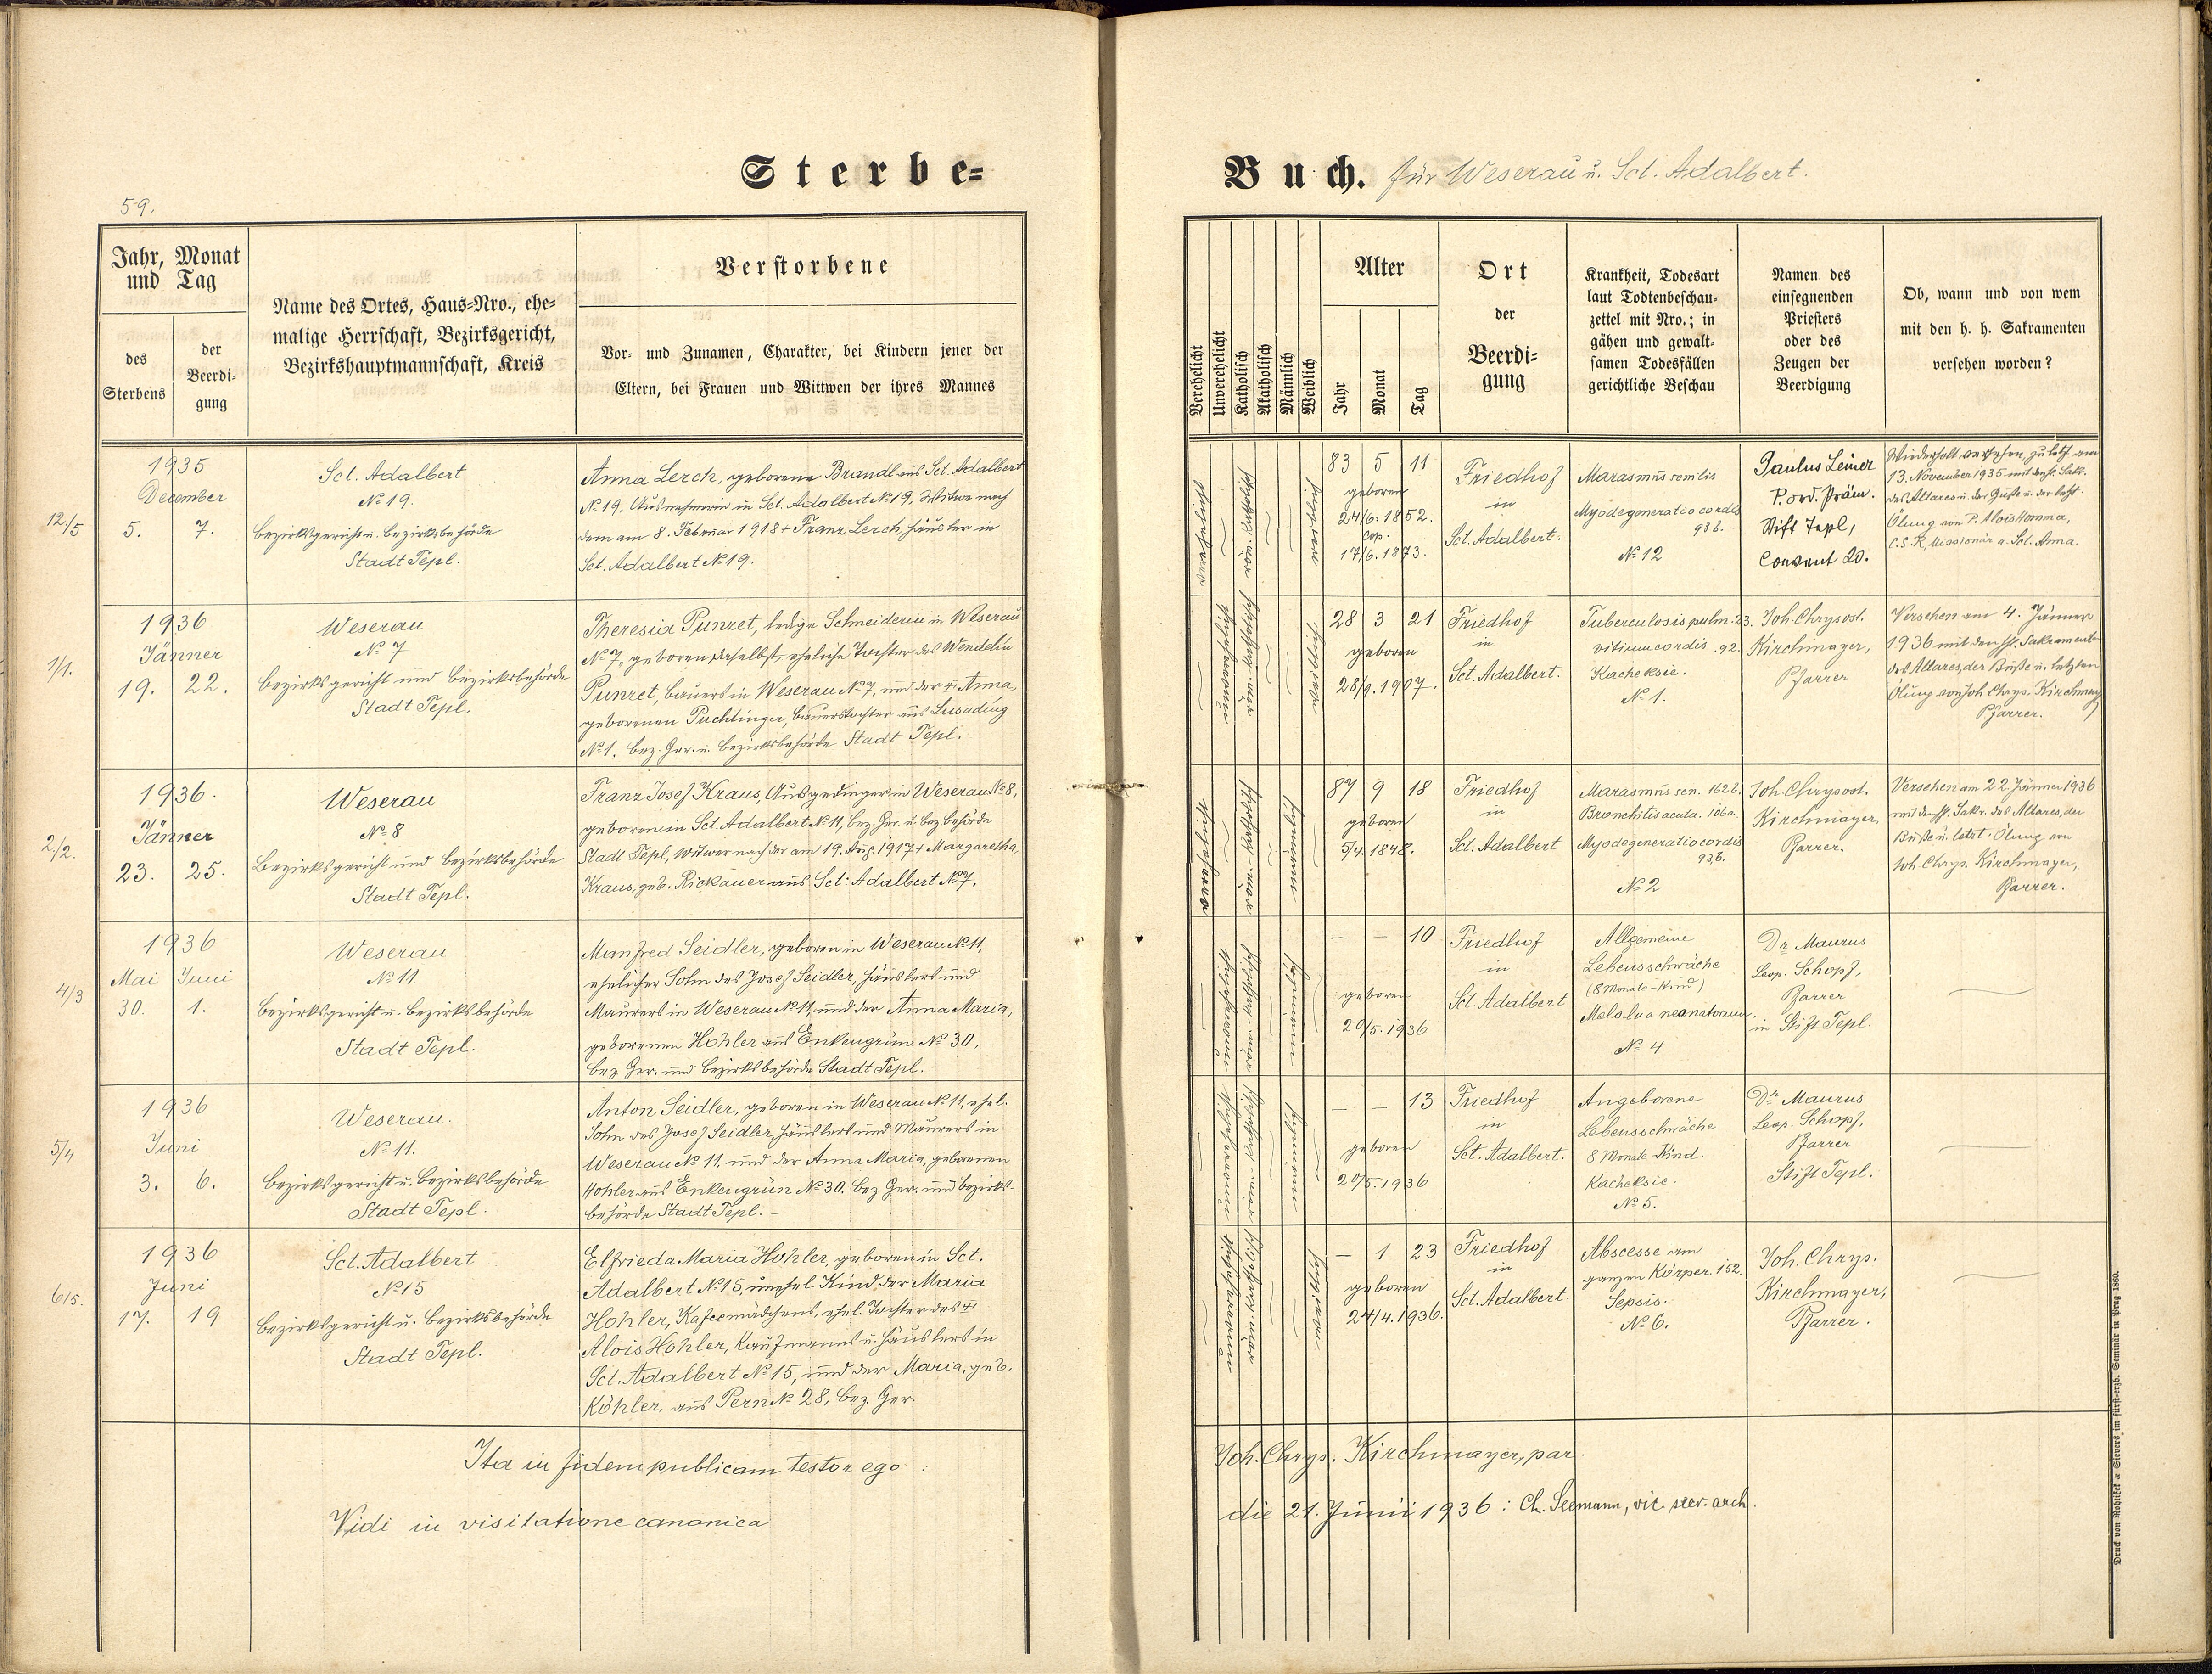 Sterbe=
Buch. für Weserau u. Sct. Adalbert.
59.
Jahr, Monat
und Tag
des
Sterbens
der
Beerdi=
gung
Name des Ortes, Haus=Nro., ehe=
malige Herrschaft, Bezirksgericht,
Bezirkshauptmannschaft, Kreis
Verstorbene
Vor= und Zunamen, Charakter, bei Kindern jener der
Eltern, bei Frauen und Wittwen der ihres Mannes
Verehelicht
Unverehelicht
Katholisch
Akatholisch
Männlich
Weiblich
Alter
Jahr
Monat
Tag
Ort
der
Beerdi=
gung
Krankheit, Todesart
laut Todtenbeschau=
zettel mit Nro.; in
gähen und gewalt=
samen Todesfällen
gerichtliche Beschau
Namen des
einsegnenden
Priesters
oder des
Zeugen der
Beerdigung
Ob, wann und von wem
mit den h. h. Sakramenten
versehen worden?
12/5
1935
December
5. 7.
Sct. Adalbert
No 19.
Bezirksgericht u. Bezirksbehörde
Stadt Tepl.
Anna Lerch, geborene Brandl aus Sct. Adalbert
No 19, Ausnehmerin in Sct. Adalbert No 19, Witwe nach
dem am 8. Februar 1918 + Franz Lerch, Häusler in
Sct. Adalbert No 19.
83 5 11
geboren
24/6. 1852.
cop.
17/6. 1873.
Friedhof
in
Sct. Adalbert.
Marasmus senilis
Myodegeneratio cordis
93 b.
No 12
Paulus Leiner
P. ord. Präm.
Stift Tepl,
Convent 20.
Wiederholt versehen, zuletzt am
13. November 1935 mit den hl. Sakr.
des Altares u. der Buße u. der letzt.
Ölung von P. Alois Hammer,
C.S.R, Missionär a. Sct. Anna.
1/1.
1936
Jänner
19. 22.
Weserau
No 7
Bezirksgericht und Bezirksbehörde
Stadt Tepl.
Theresia Punzet, ledige Schneiderin in Weserau
No 7, geboren daselbst, eheliche Tochter des Wendelin
Punzet, Bauers in Weserau No 7, und der + Anna,
geborenen Puchtinger, Bauerstochter aus Lusading
No 1. Bez. Ger. u. Bezirksbehörde Stadt Tepl.
28 3 21
geboren
28/9. 1907.
Friedhof
in
Sct. Adalbert.
Tuberculosis pulm. 23.
vitium cordis . 92.
Kacheksie.
No 1.
Joh. Chrysost.
Kirchmayer,
Pfarrer
Versehen am 4. Jänner
1936 mit den hl. Sakramenten
des Altares, der Buße u. letzten
Ölung von Joh. Chrys. Kirchmayer
Pfarrer.
2/2.
1936.
Jänner
23. 25.
Weserau
No 8
Bezirksgericht und Bezirksbehörde
Stadt Tepl.
Franz Josef Kraus, Ausgedinger in Weserau No 8,
geboren in Sct. Adalbert No 11, Bez. Ger. u. Bez. behörde
Stadt Tepl, Witwer nach der am 19. Aug. 1917 + Margaretha
Kraus, geb. Rickauer aus Sct: Adalbert No 7.
87 9 18
geboren
5/4. 1848.
Friedhof
in
Sct. Adalbert
Marasmus sen. 162 b.
Bronchitis acuta. 106 a.
Myodegeneratio cordis
93, b.
No 2
Joh. Chrysost.
Kirchmayer
Pfarrer.
Versehen am 22. Jänner 1936
mit den hl. Sakr. des Altares, der
Buße u. letzt. Ölung von
Joh. Chrys. Kirchmayer,
Pfarrer.
4/3
1936
Mai Juni
30. 1.
Weserau
No 11
Bezirksgericht u. Bezirksbehörde
Stadt Tepl.
Manfred Seidler, geboren in Weserau No 11,
ehelicher Sohn des Josef Seidler, Häuslers und
Maurers in Weserau No 11, und der Anna Maria,
geborenen Hohler aus Enkengrün No 30,
Bez. Ger. und Bezirksbehörde Stadt Tepl.
— — 10
geboren
20/5. 1936
Friedhof
in
Sct. Adalbert
Allgemeine
Lebensschwäche
(8 Monats-Kind)
Melalna neonatorum.
No 4
Dr. Maurus
Leop. Schopf,
Pfarrer
in Stift Tepl.
5/4
1936
Juni
3. 6.
Weserau.
No 11.
Bezirksgericht u. Bezirksbehörde
Stadt Tepl.
Anton Seidler, geboren in Weserau No 11, ehel.
Sohn des Josef Seidler, Häuslers und Maurers in
Weserau No 11. und der Anna Maria, geborenen
Hohler aus Enkengrün No 30. Bez. Ger. und Bezirks-
behörde Stadt Tepl. —
— — 13
geboren
20/5. 1936
Friedhof
in
Sct. Adalbert.
Angeborene
Lebensschwäche
8 Monats-Kind.
Kacheksie.
No 5.
Dr. Maurus
Leop. Schopf,
Pfarrer
Stift Tepl.
6/5.
1936
Juni
17. 19
Sct. Adalbert
No 15
Bezirksgericht u. Bezirksbehörde
Stadt Tepl.
Elfrieda Maria Hohler, geboren in Sct.
Adalbert No 15, unehel. Kind der Maria
Hohler, Kafeemädchens, ehel. Tochter des +
Alois Hohler, Kaufmanns u. Häuslers in
Sct. Adalbert No 15, und der Maria, geb.
Köhler, aus Pern No 28, Bez. Ger.
— 1 23
geboren
24/4. 1936.
Friedhof
in
Sct. Adalbert.
Abscesse am
ganzen Körper. 152.
Sepsis.
No 6.
Joh. Chrys.
Kirchmayer,
Pfarrer.
Ita in fidem publicam testor ego :
Joh. Chrys. Kirchmayer, par.
Vidi in visitatione canonica
die 21. Junii 1936 : Ch. Seemann, vic. arch.
Druck von Rohliček & Sievers im fürst-erzb. Seminär in Prag 1860.